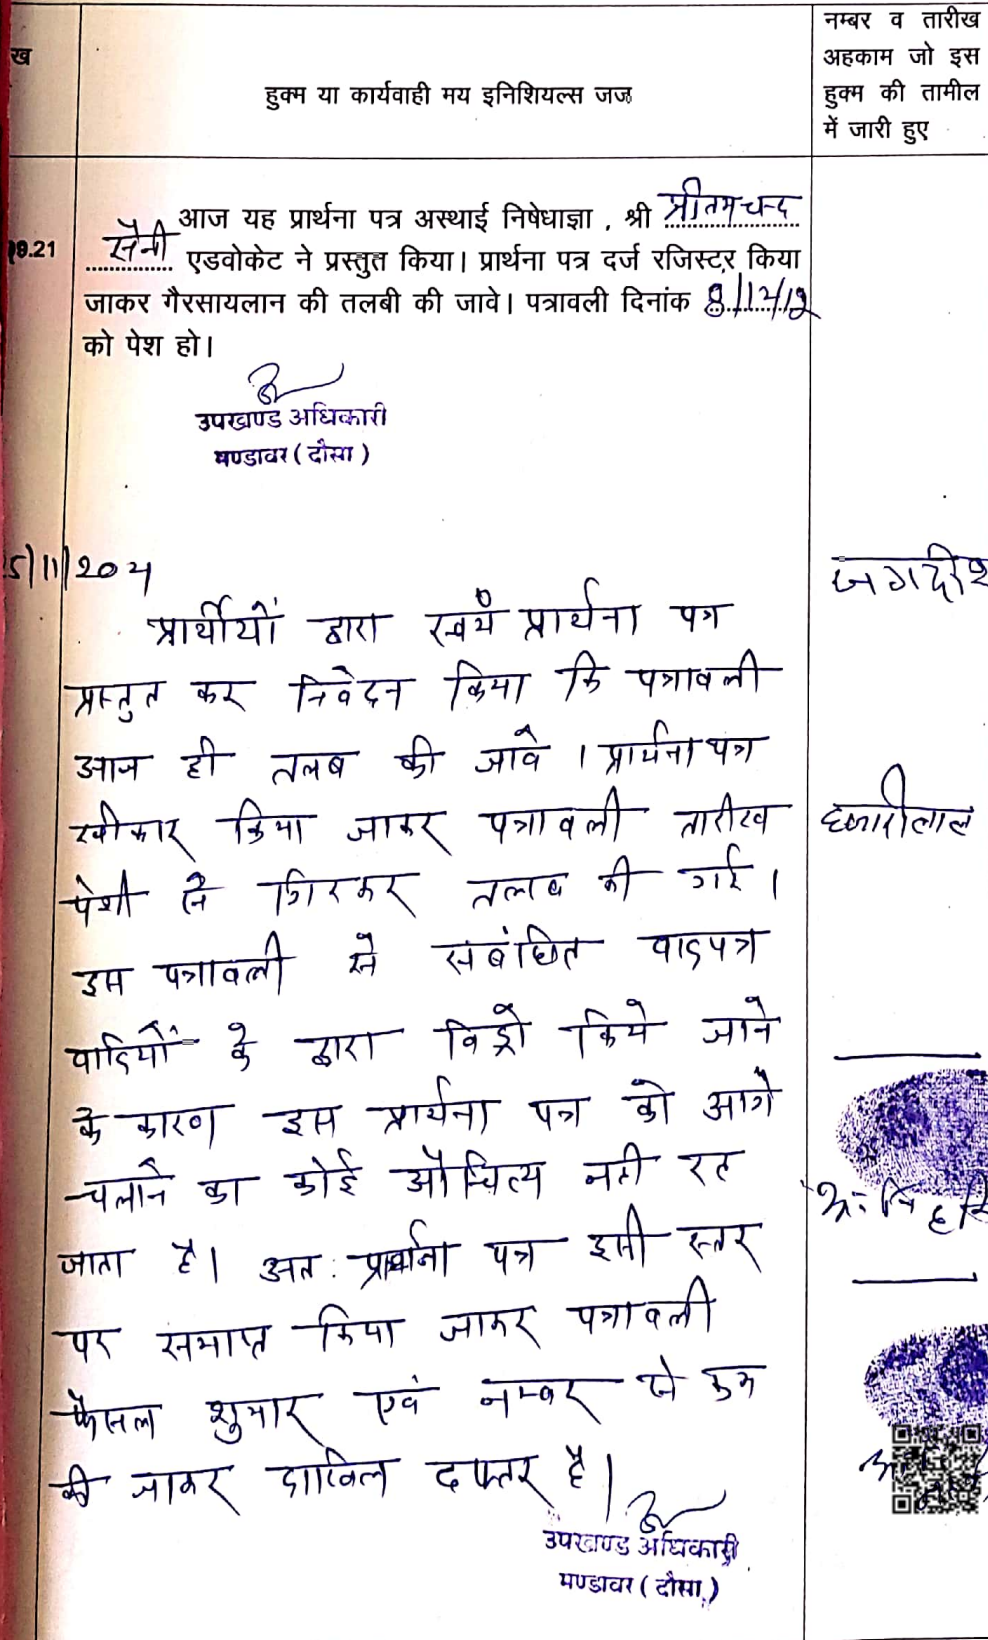 ख
हुक्म या कार्यवाही मय इनिशियल्स जज
नम्बर व तारीख
अहकाम जो इस
हुक्म की तामील
में जारी हुए
9.21
आज यह प्रार्थना पत्र अस्थाई निषेधाज्ञा , श्री प्रीतमचन्द
सैनी एडवोकेट ने प्रस्तुत किया। प्रार्थना पत्र दर्ज रजिस्टर किया
जाकर गैरसायलान की तलबी की जावे। पत्रावली दिनांक 8/12/
को पेश हो।
उपखण्ड अधिकारी
मण्डावर (दौसा)
5/11/2024
प्रार्थीयों द्वारा स्वयं प्रार्थना पत्र
प्रस्तुत कर निवेदन किया कि पत्रावली
आज ही तलब की जावे। प्रार्थना पत्र
स्वीकार किया जाकर पत्रावली तारीख
पेशी से तलब की गई।
इस पत्रावली से संबंधित वादपत्र
वादियों के द्वारा विड्रो किये जाने
के कारण इस प्रार्थना पत्र को आगे
चलाने का कोई औचित्य नही रह
जाता है। अत: प्रार्थना पत्र इसी स्तर
पर समाप्त किया जाकर पत्रावली
फैसला शुमार एवं नम्बर से कम
की जाकर दाखिल दफ्तर है।
उपखण्ड अधिकारी
मण्डावर (दौसा)
जगदीश
हजारीलाल
अ: नि